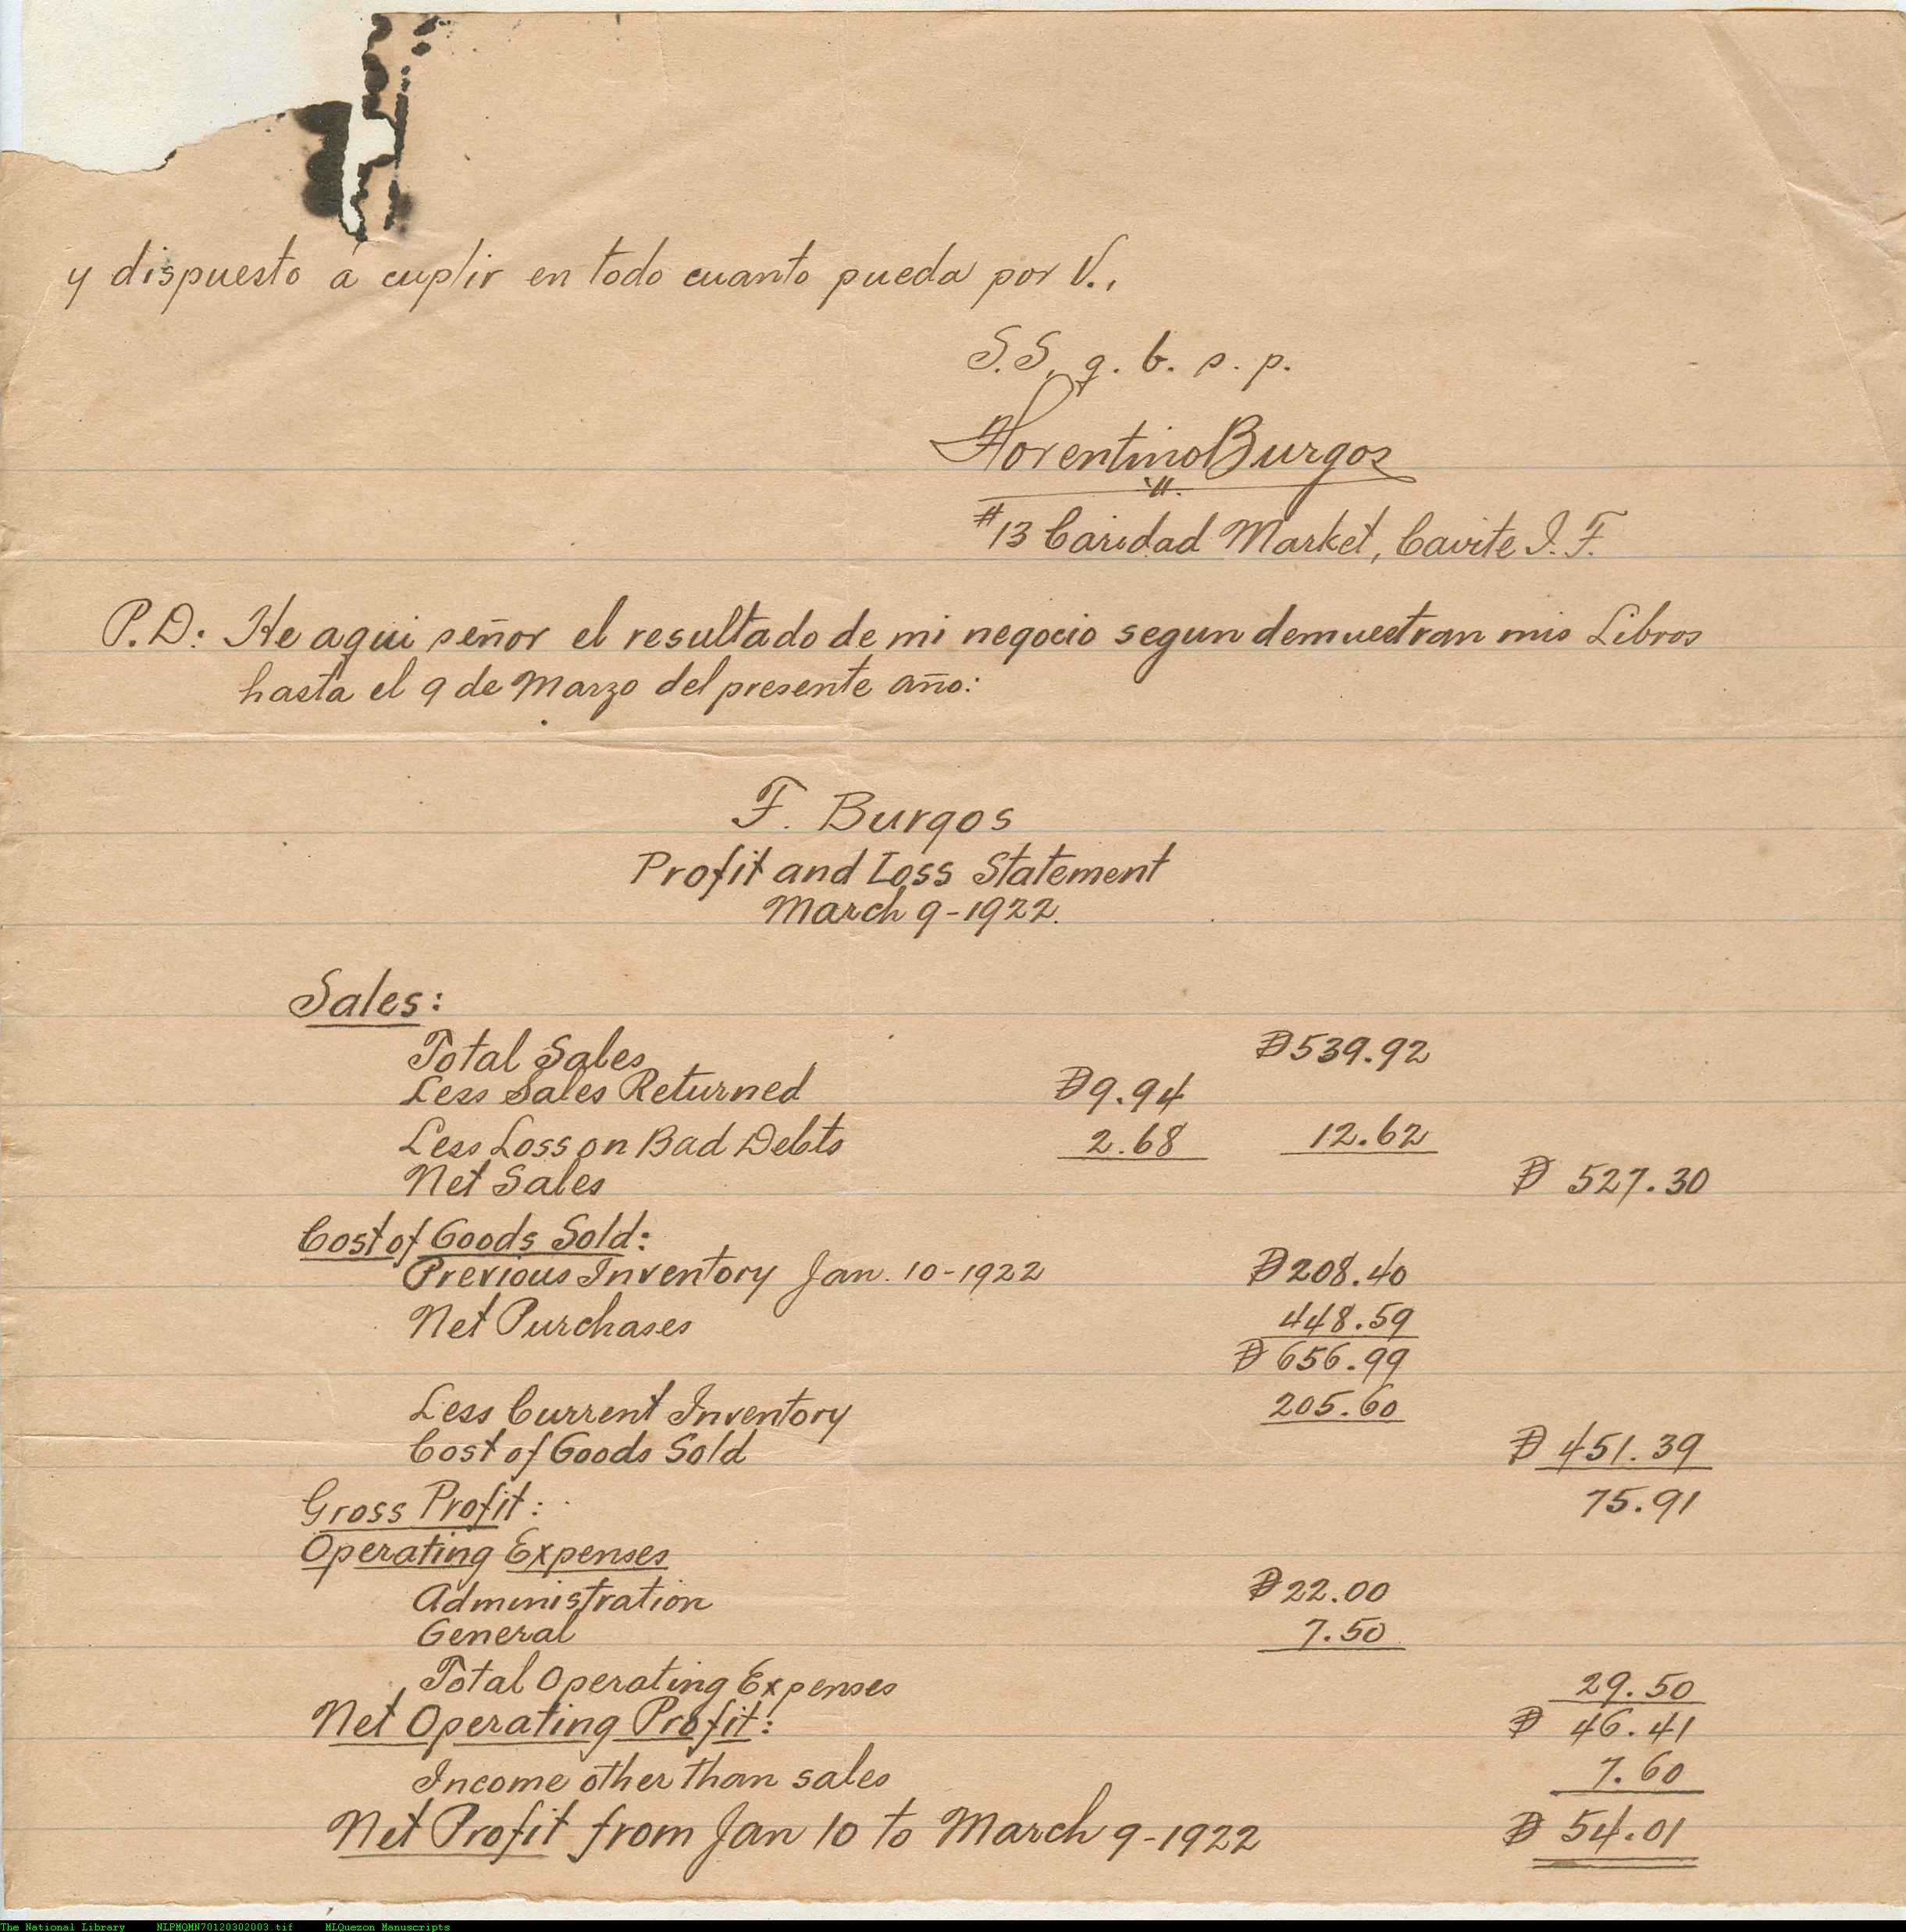 y dispuesto á cuplir en todo cuanto pueda por V.,
S.S. q. b. s. p.
Florentino Burgos
#13 Caridad Market, Cavite I. F.
P.D: He aqui señor el resultado de mi negocio segun demuestran mis Libros
hasta el 9 de Marzo del presente año:
F. Burgos
Profit and Loss Statement
March 9-1922.
Sales:
Total Sales ₱539.92
Less Sales Returned ₱9.94
Less Loss on Bad Debts 2.68 12.62
Net Sales ₱ 527.30
Cost of Goods Sold:
Previous Inventory Jan. 10-1922 ₱208.40
Net Purchases 448.59
₱ 656.99
Less Current Inventory 205.60
Cost of Goods Sold ₱ 451.39
Gross Profit: 75.91
Operating Expenses
Administration ₱22.00
General 7.50
Total Operating Expenses 29.50
Net Operating Profit: ₱ 46.41
Income other than sales 7.60
Net Profit from Jan 10 to March 9-1922 ₱ 54.01
The National Library NLPMQMN70120302003.tif MLQuezon Manuscripts